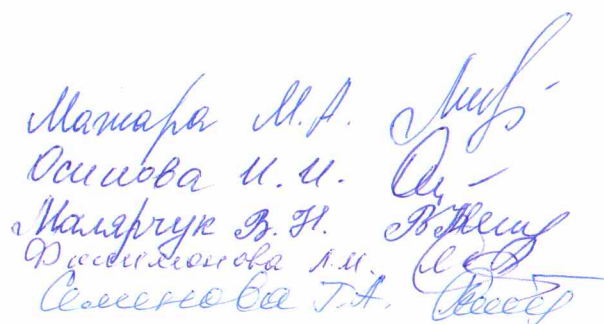 Матара М. А.
Осипова И. И.
Малярчук В. Н.
Филимонова Л. М.
Семенова Г. А.